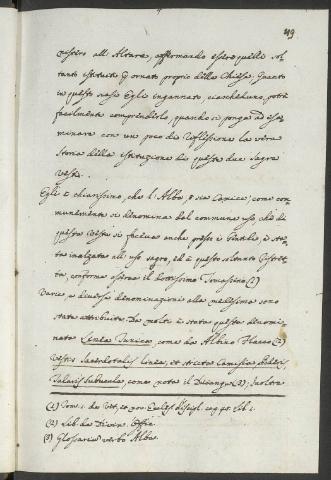 49
vestiro all'Altare, affermando essere quelle sol
tanto istituite p ornato proprio della Chiesa; Quanto
in questo siasi Egli ingannato, ciascheduno potrà
facilmente comprenderlo, quando si ponga ad esa-
minare con un poco di riflessione la vera
storia della istituzione di queste due sagre
vesti.
Egli è chiarissimo, che l'Alba, o sia Camice, come com
munemente si denomina dal commune uso, che di
questa veste si faceva anche presso i Gentili, è sta-
ta inalzata all'uso sagro, ed à questo solenne
conforme osserva il dottissimo Tomassino (1)
Varie, e diverse denominazioni alla medesima sono
state attribuite. Da molti è stata questa denomi-
nata Linea Tunica come da Albino Flacco (2)
Vestis Sacerdotalis linea, et stricta Camisia
Talaris subucula, come nota il Ducange (3); Inoltre
(1) Tom. 1. de Vet. et nov. Eccles. Discipl. cap. lib. 1.
(2) Lib. de Divin. Offic.
(3) Glossarium verbo Alba.